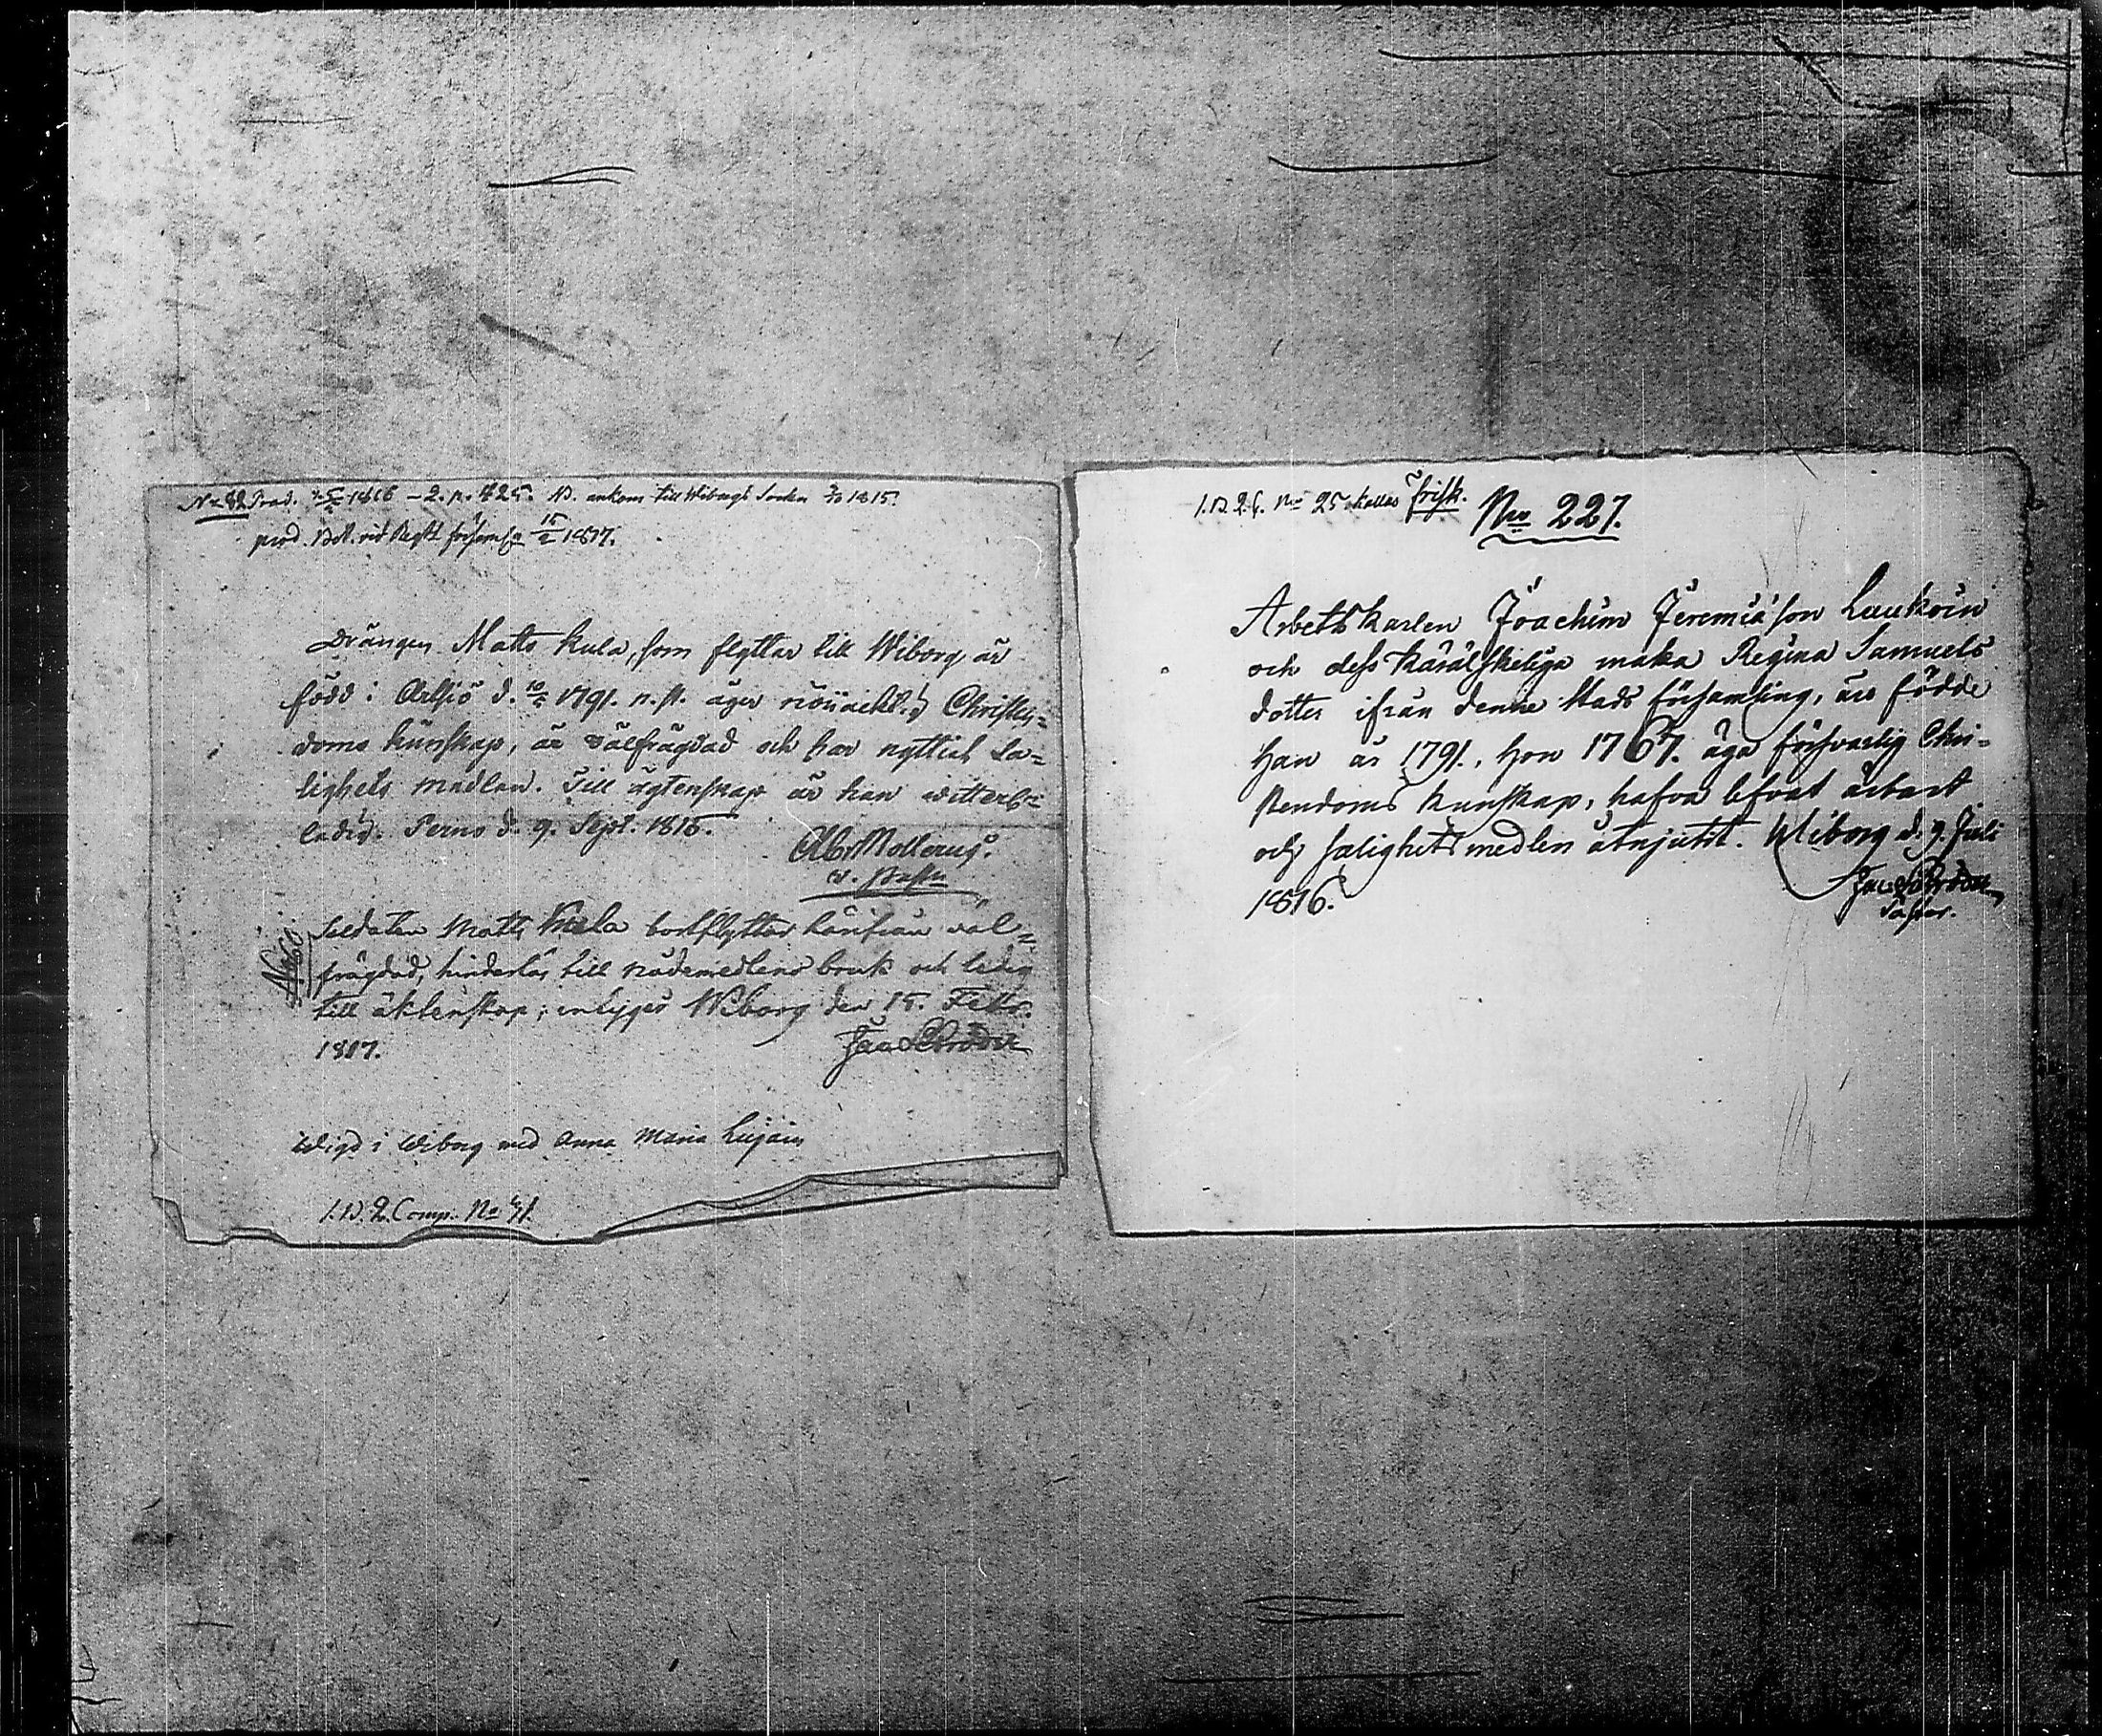 No 82 Prod. 1816 – 2. p. 425. NB. ankom till Wiborgs Socken 1815.
prod. vid Regtt församl. 15/2 1817.
Drängen Matts Kula, som flyttar till Wiborg, är
född i Artsjö d. 10 1791. n. st. äger Christen-
doms kunskap, är välfrägdad och har nyttiat Sa-
lighets medlen. Till ägtenskap är han witterl:n
ledig. Perno d. 9. Sept. 1815.
Abr Mollerus.
v. Pastor
No 66
Soldaten Matts Kula bortflyttar härifrån väl-
frägdad, hinderlös till nådemedlens bruk och ledig
till äktenskap; intygas Wiborg den 15. Febr.
1817.
Jac. Schröder
Wigd i Wiborg med Anna Maria
1. B. 2. Comp. No 41.
1. B. 2. C. No 25 kallas Frisk.
No 227.
Arbetskarlen Joachim Jeremiæ son Laukoin
och dess kärälskeliga maka Regina Samuels
dotter ifrån denne Stads församling, äro födde
han år 1791., hon 1767. äga försvarlig Chri-
stendoms kunskap, hafva lefvat ärbart
och salighets medlen åtnjutit. Wiborg d. 9. Juli
1816.
Jac. Schröder
Pastor.